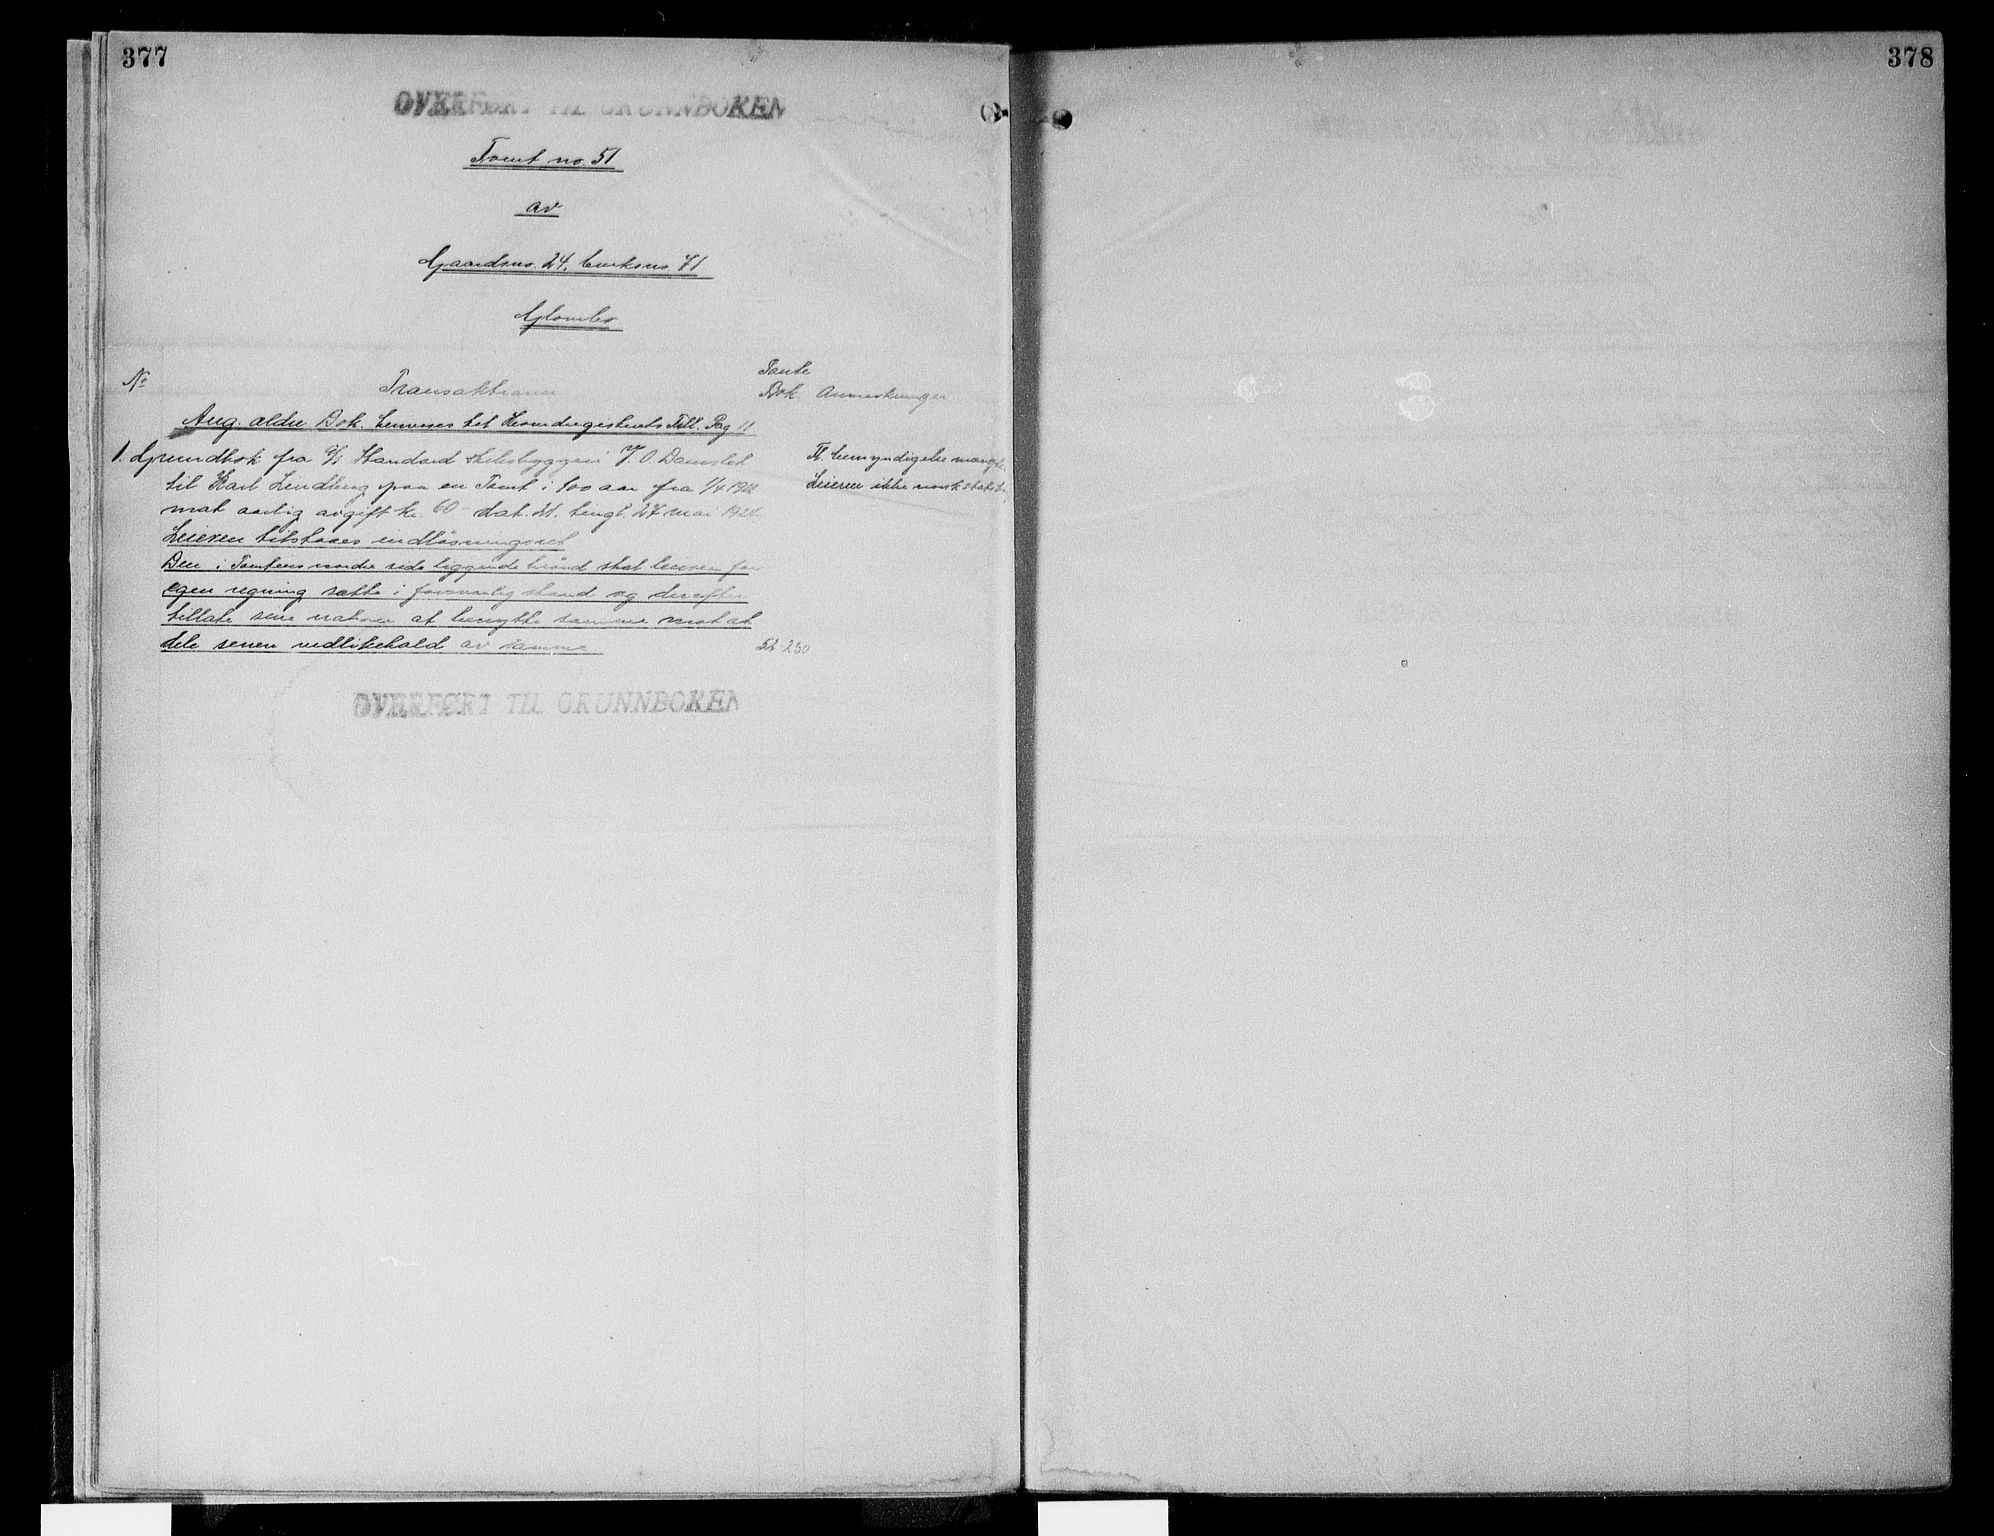 377
378
OVERFØRT TIL GRUNNBOKEN
Tomt no. 51
av
Gaardsno. 24, bruksno. 71
Glombo
No Transaktionen Pante Bok. Anmerkninger
Ang. ældre Dok. henvises til Hovedregisterets Till. Pag 11
1. Grundbok fra A/S Standard Skibsbyggeri V. O. Damslet
til Karl Lindberg paa en Tomt i 100 aar fra 1/4
mot aarlig avgift kr. 60 - dat. 21. tingl. 27 mai
Leieren tilstaaes indløsningsret
Den i Tomtens nordre side liggende brønd skal leieren for
egen regning sætte i forsvarlig stand og derefter
tillate sine naboer at benytte samme mot at
dele senere vedlikehold av samme 52-230
Fl. bemyndigelse
Leieren ikke norsk
OVERFØRT TIL GRUNNBOKEN